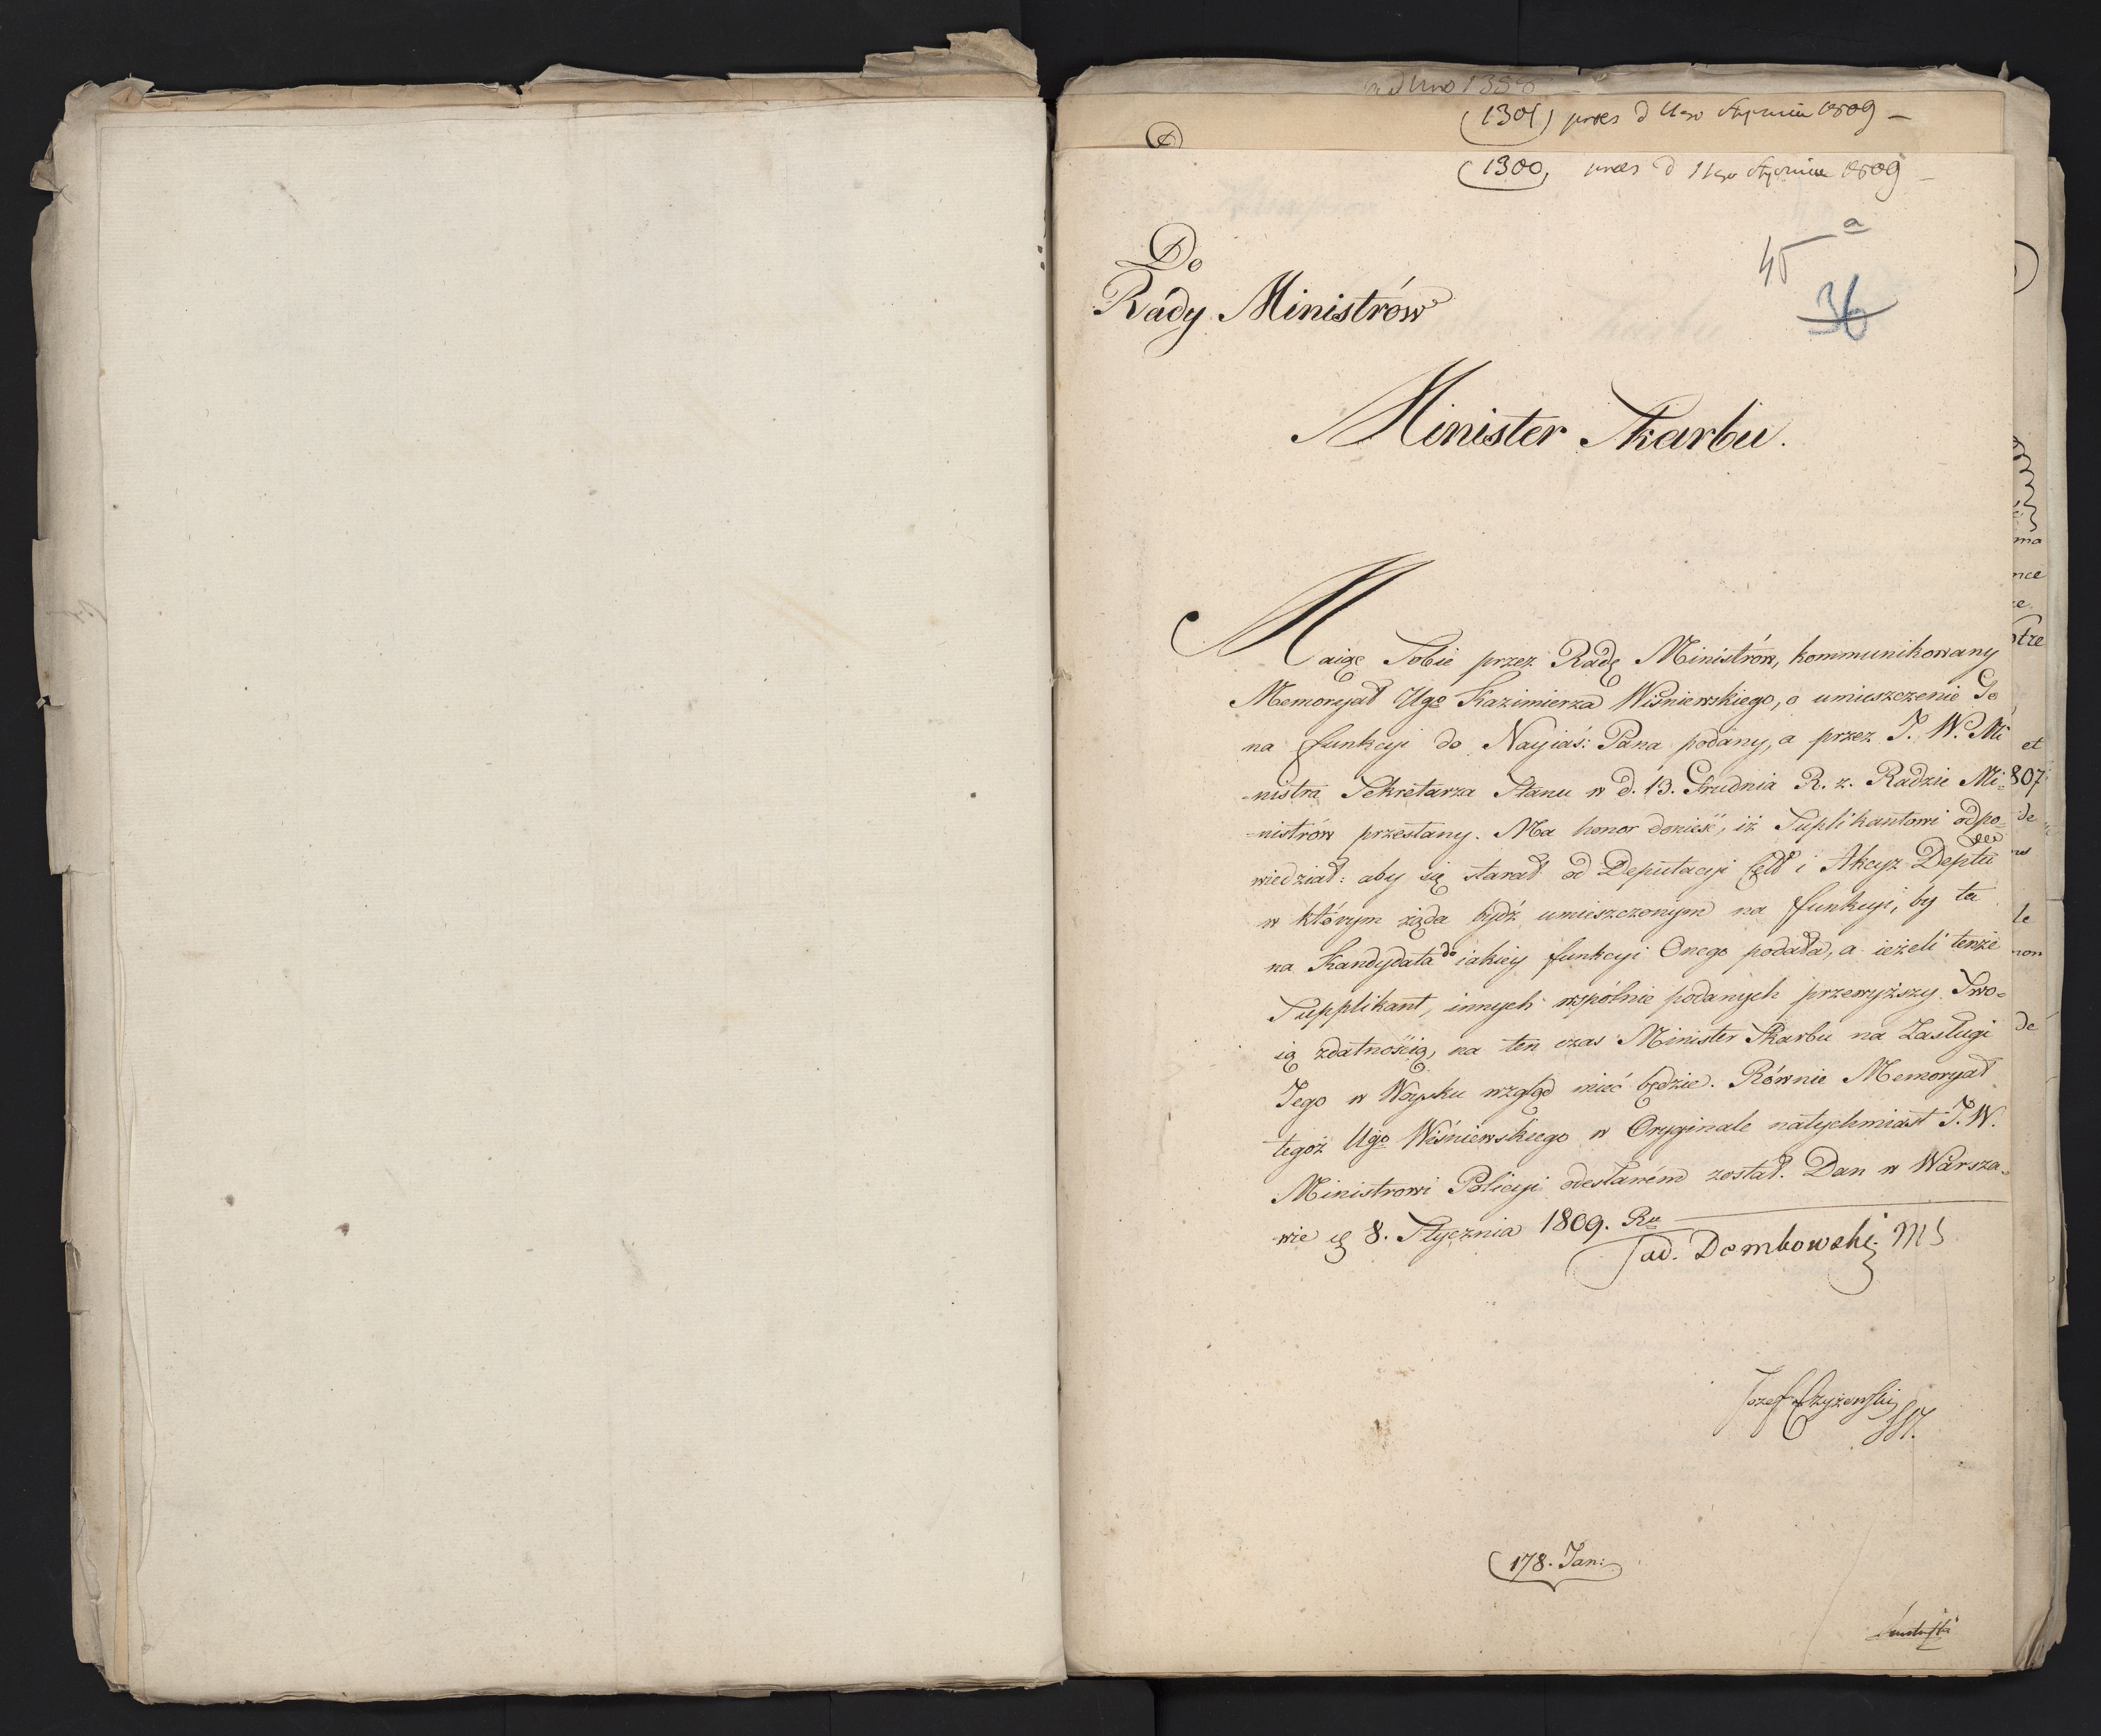 ad Nro 1358
1301 praes d 11go Stycznia 1809 —
1300, praes d 11go Stycznia 1809 —
a
45
36
Do
Rády Ministrów
Minister Skarbu.
Maiąc Sobie przez Radę Ministrów, kommunikowany
Memoryał Ugo Kazimierza Wiśniewskiego, o umieszczenie Go
na funkcyi do Nayiaś: Pana podany, a przez J. W. Mi
-nistra Sekretarza Stanu w d. 13. Grudnia R. z. Radzie Mi-
-nistrów przesłany. Ma honor donieść, iż Suplikantowi odpo-
wiedział: aby się starał od Deputacyi Ceł i Akcyz Deptu
w którym rząda bydź umieszczonym na funkcyi, by ta
na Kandydata do iakiey funkcyi Onego podała, a ieżeli tenże
Supplikant, innych wspólnie podanych przewyższy Swo-
ią zdatnością, na ten czas Minister Skarbu na Zasługi
Jego w Woysku wzgląd mieć będzie. Równie Memoryał
tegoż Ugo Wiśniewskiego w Oryginale natychmiast J. W.
Ministrowi Policyi odesłaném został. Dan w Warsza-
-wie d 8. Stycznia 1809. Ru
Tad. Dembowski MS
Jozef Czyżewski
178. Jan:
ma
nce
tre
et
807
de
le
non
de